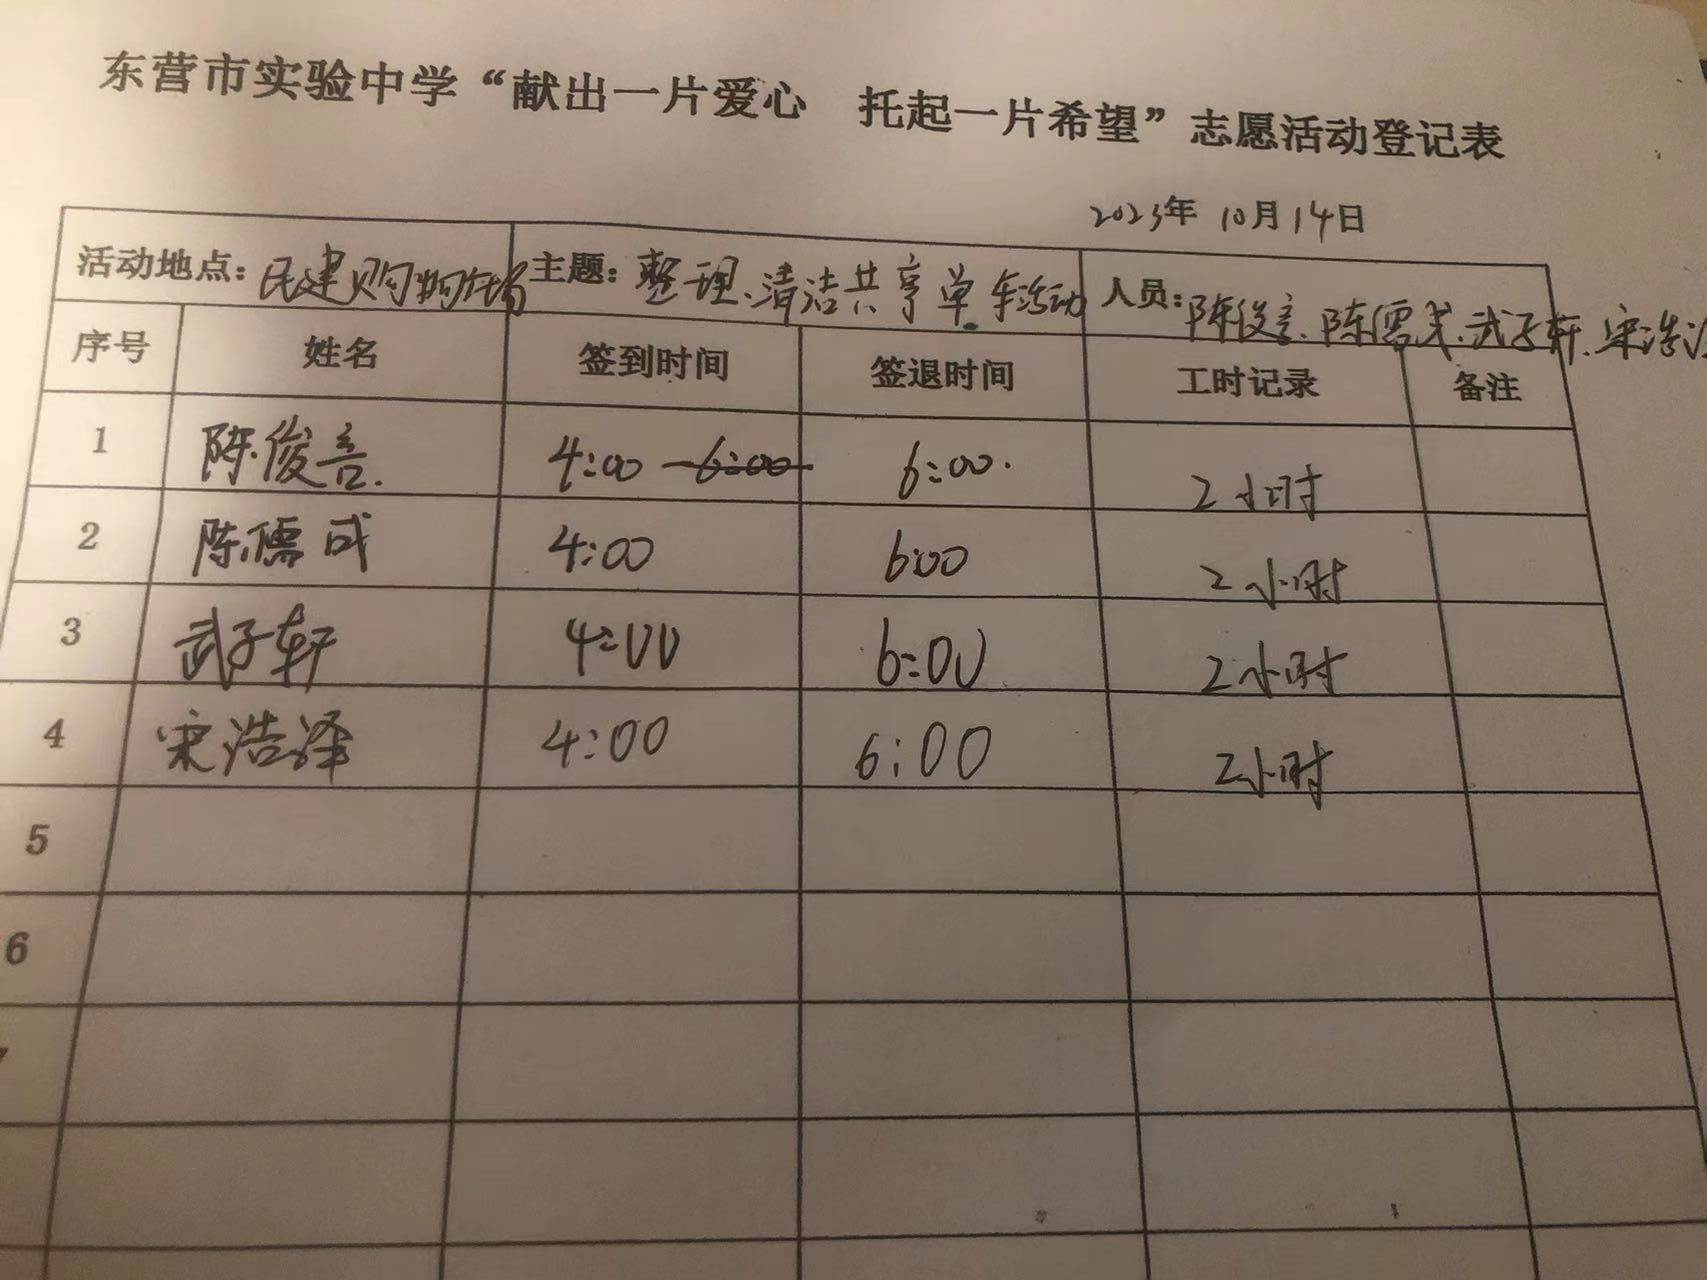 东营市实验中学“献出一片爱心 托起一片希望”志愿活动登记表
2023年 10月14日
活动地点：民建购物广场 主题：整理、清洁共享单车活动 人员：陈俊言、陈儒成、武子轩、宋浩泽
序号 姓名 签到时间 签退时间 工时记录 备注
1 陈俊言. 4:00 —6:00 6:00. 2小时
2 陈儒成 4:00 6:00 2小时
3 武子轩 4:00 6:00 2小时
4 宋浩泽 4:00 6:00 2小时
5
6